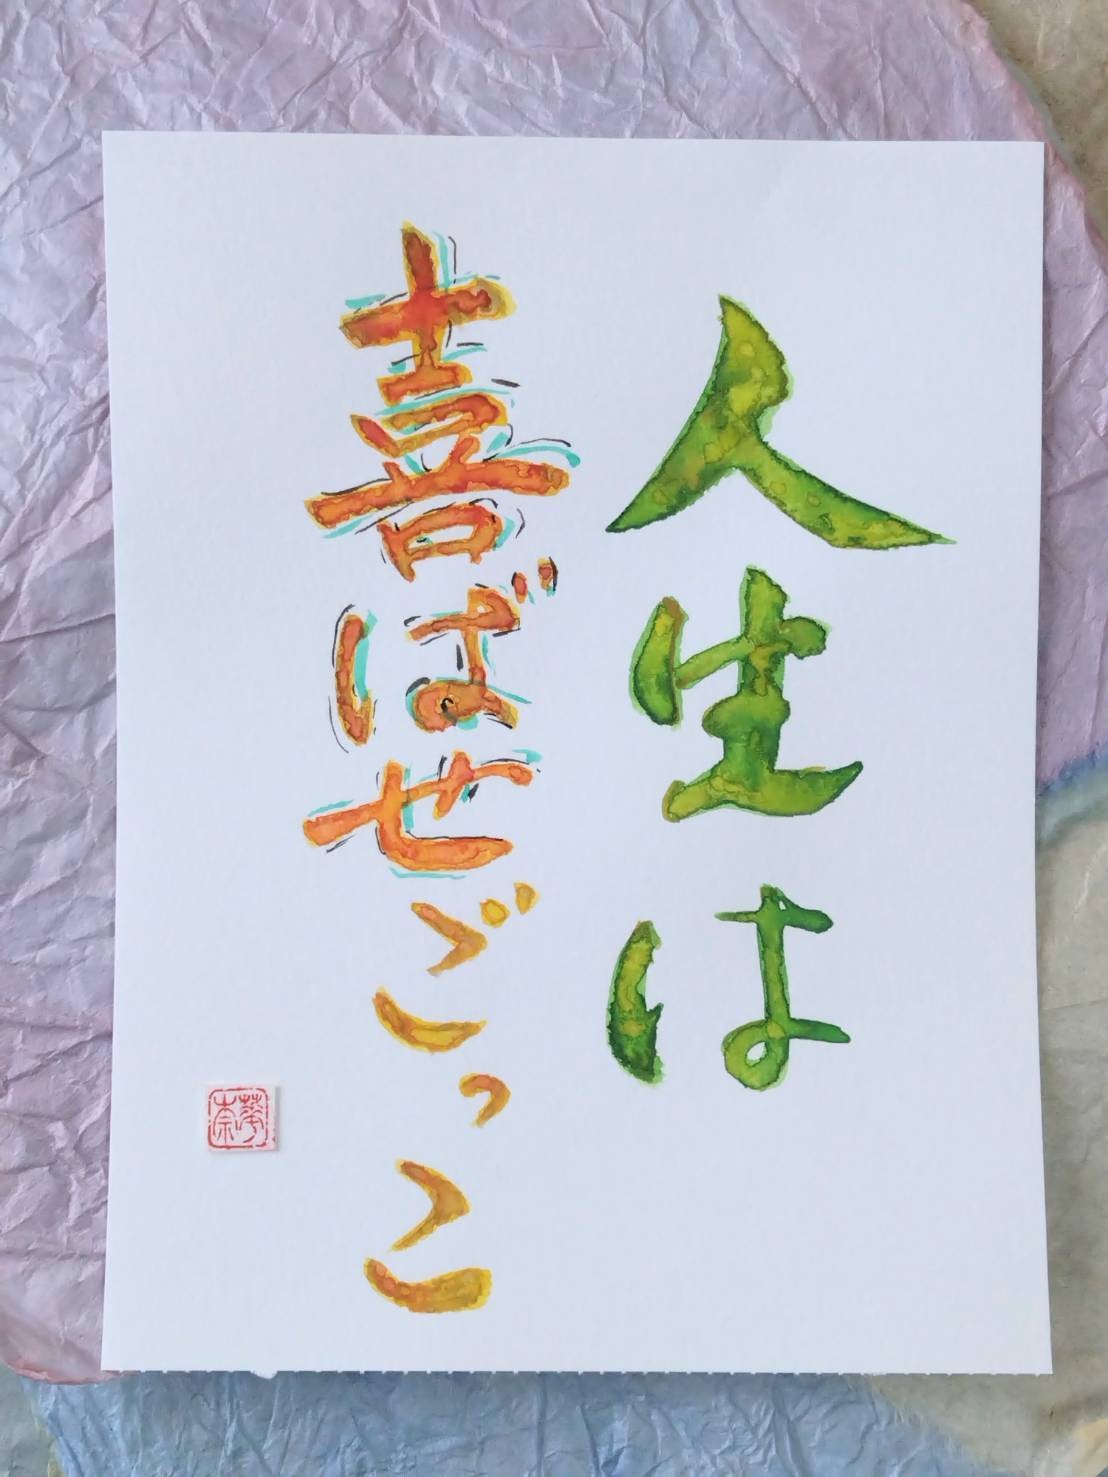 人生は
喜ばせごっこ